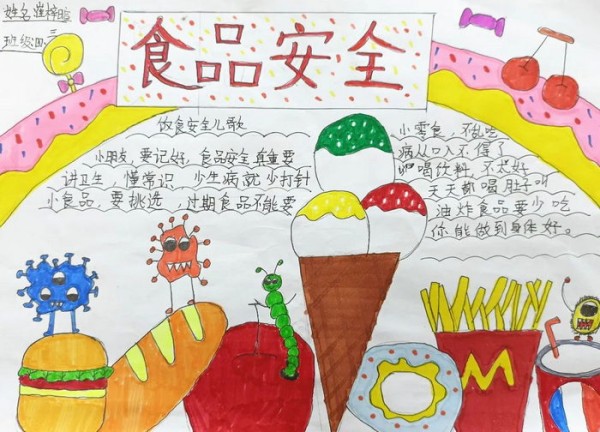 姓名崔梓
班级四三
食品安全
饮食安全儿歌
小朋友,要记好,食品安全真重要
讲卫生,懂常识 少生病就少打针
小食品,要挑选,过期食品不能要
小零食,不乱吃
病从口入不得了
喝饮料,不太好
天天都喝肚子叫
油炸食品要少吃
你能做到身体好。
M